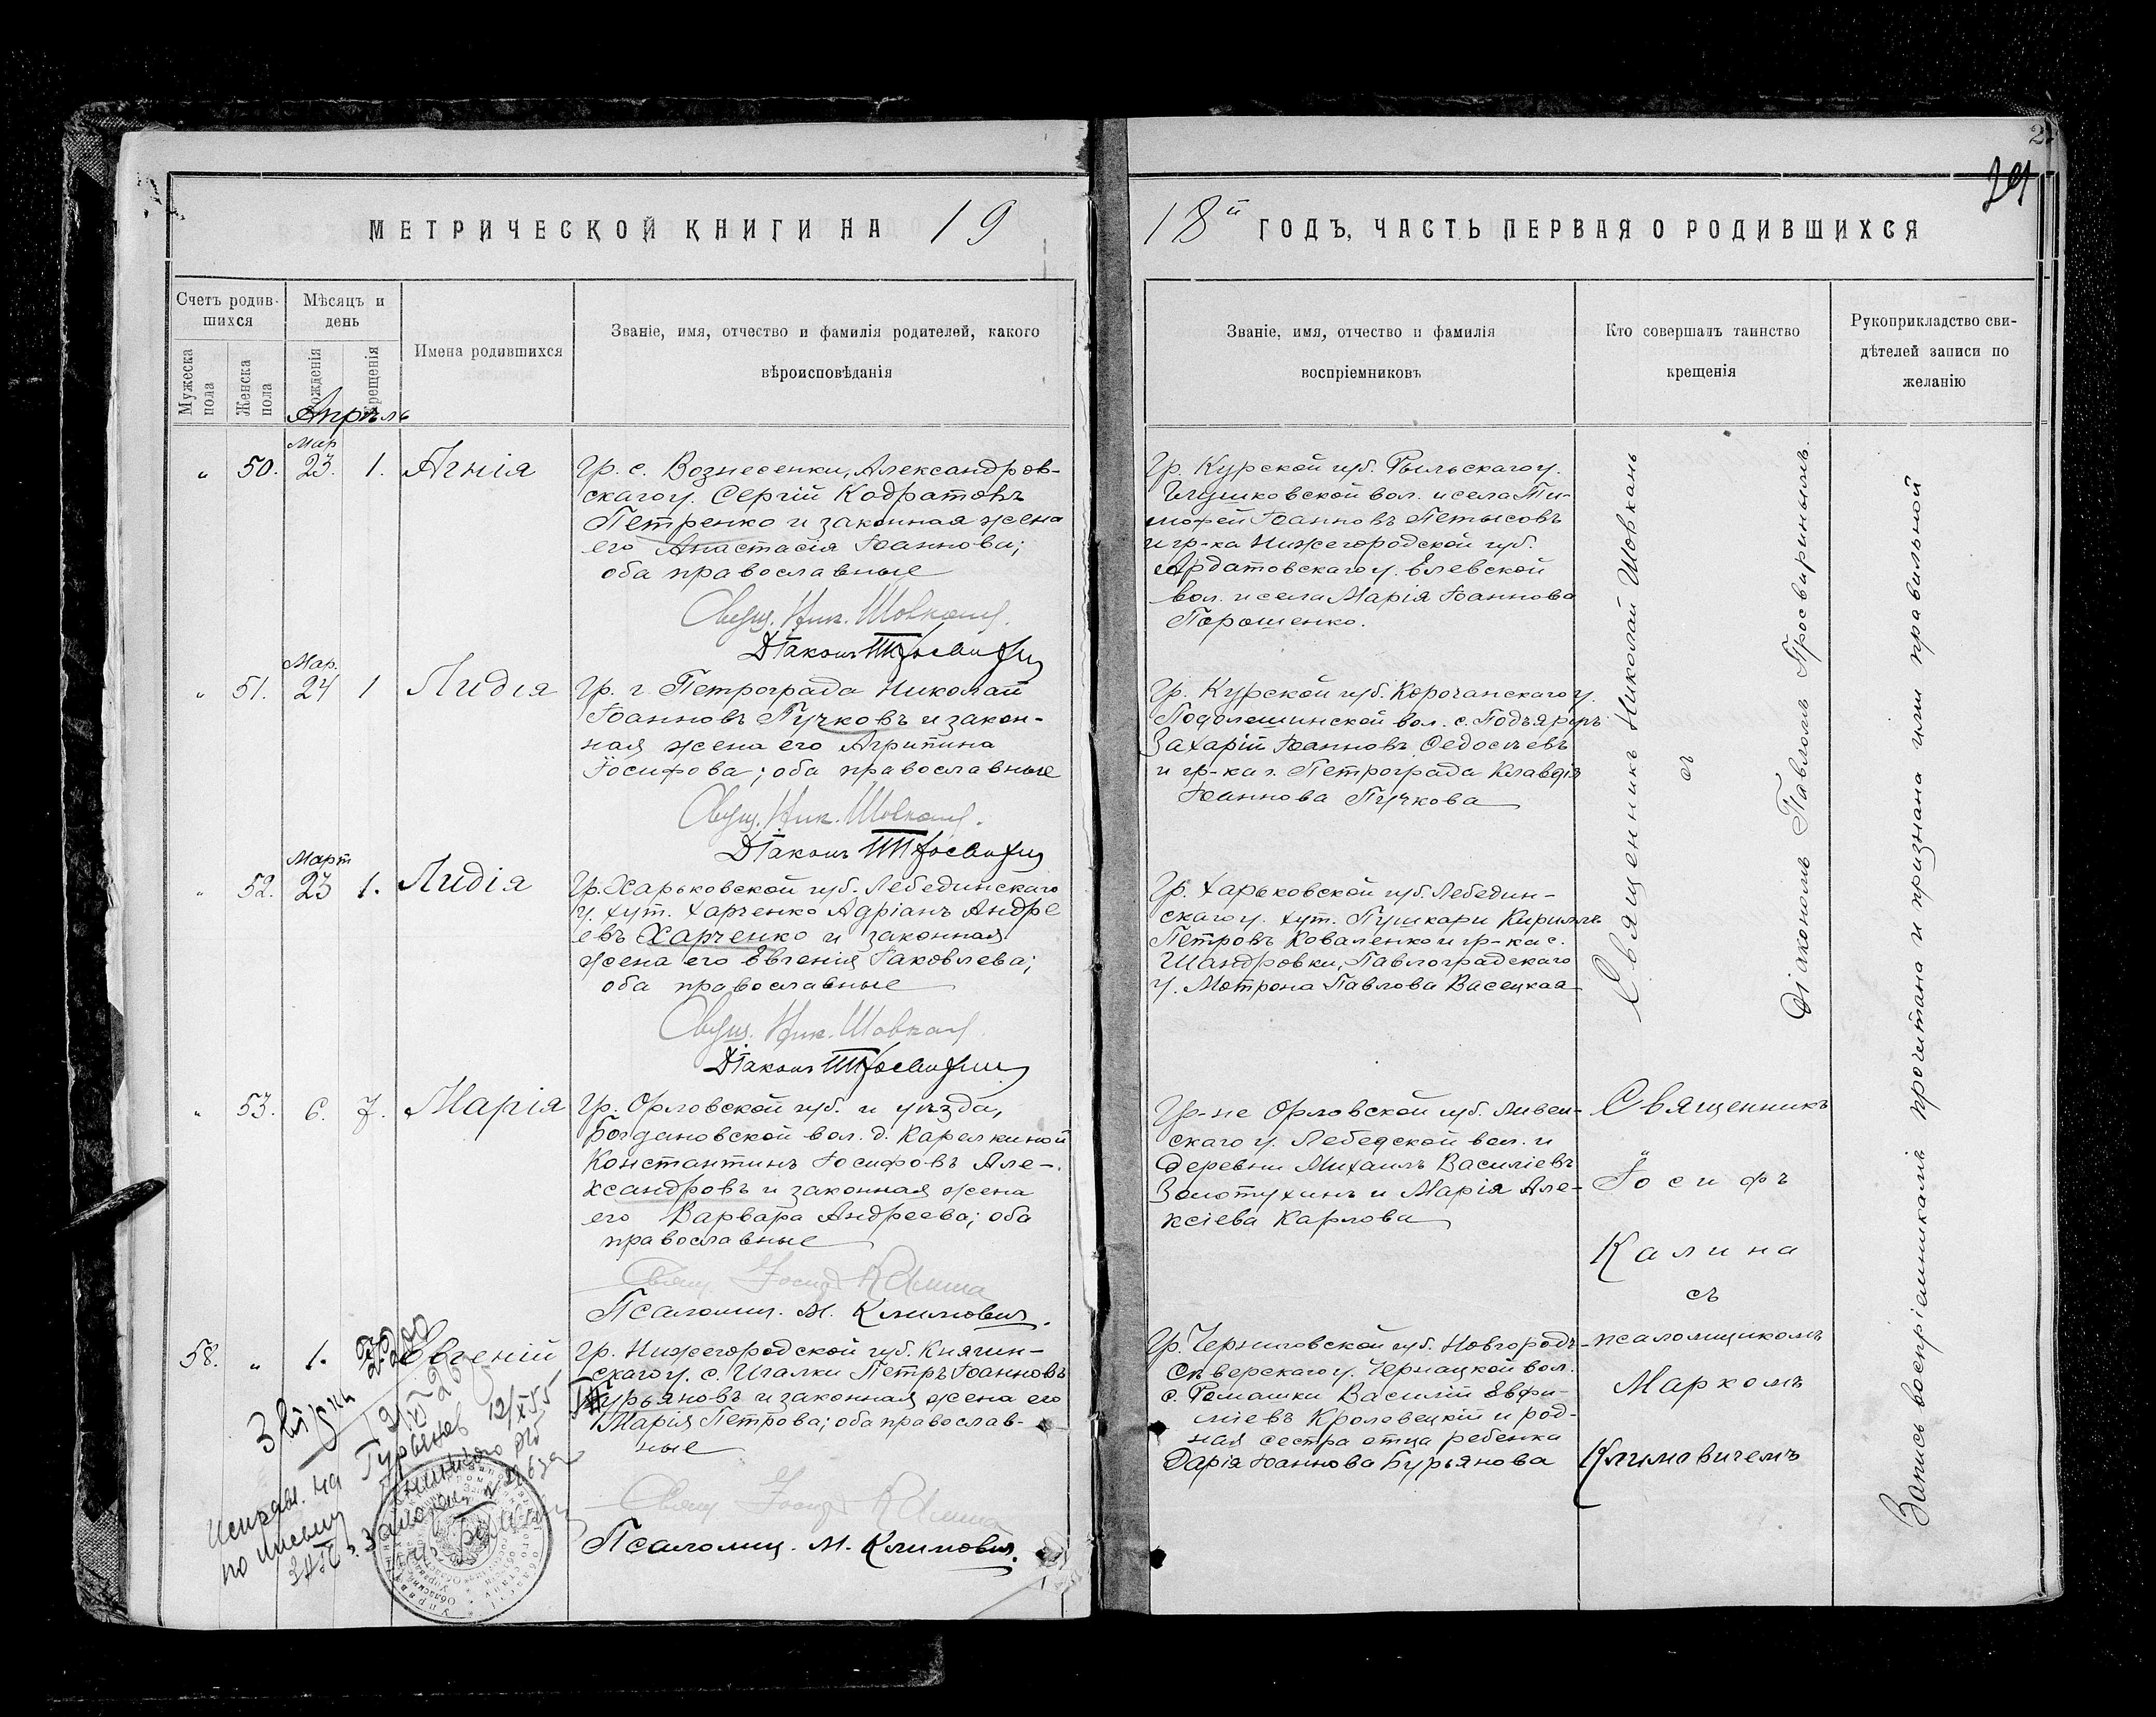 МЕТРИЧЕСКОЙ КНИГИ НА 19
Счетъ родив-
шихся
Мѣсяцъ и
день
Имена родившихся
Званіе, имя, отчество и фамилія родителей, какого
вѣроисповѣданія
Мужеска
пола
Женска
пола
рожденія
крещенія
Апрѣль
Мар
" 50. 23. 1. Агнія
Гр. с. Вознесенки, Александров-
скаго у. Сергій Кодратовъ
Петренко и законная жена
его Анастасія Іоаннова;
оба православные
Свящ. Ник. Шовкань.
Діаконъ
Мар.
" 51. 24 1 Лидія
Гр. г. Петрограда Николай
Іоанновъ Пучковъ и закон-
ная жена его Агрипина
Іосифова; оба православные
Свящ. Ник. Шовкань.
Діаконъ
Март
" 52. 23 1. Лидія
Гр. Харьковской губ. Лебединскаго
у. хут. Харченко Адріанъ Андре
евъ Харченко и законная
жена его Евгенія Іаковлева;
оба православные
Свящ. Ник. Шовкань.
Діаконъ
" 53. 6. 7. Марія
Гр. Орловской губ. и уѣзда,
Богдановской вол. д. Карелкиной
Константинъ Іосифовъ Але-
ксандровъ и законная жена
его Варвара Андреева; оба
православные
Свящ Іосиф Калина
Псаломщ. М. Климович.
58. " 1. Евгеній
Гр. Нижегородской губ. Княгин-
скаго у. с. Игалки Петръ Іоанновъ
Гурьяновъ и законная жена его
Марія Петрова; оба православ-
ные
Свящ Іосиф Калина
Псаломщ. М. Климович.
Исправ. на Гурьянов 12/XI 55
по письму
18й ГОДЪ, ЧАСТЬ ПЕРВАЯ О РОДИВШИХСЯ
Званіе, имя, отчество и фамилія
воспріемниковъ
Кто совершалъ таинство
крещенія
Рукоприкладство сви-
дѣтелей записи по
желанію
Гр. Курской губ. Рыльскаго у.
вол. и села Ти-
мофей Іоанновъ Петысовъ
и гр-ка Нижегородской губ.
Ардатовскаго у. Елевской
вол. и села Марія Іоаннова
Порошенко.
Гр. Курской губ. Корочанскаго у.
вол. с.
Захарій Іоанновъ Ѳедосѣевъ
и гр-ка г. Петрограда Клавдія
Іоаннова Пучкова
Гр. Харьковской губ. Лебедин-
скаго у. хут. Пушкари Кириллъ
Петровъ Коваленко и гр-ка с.
Шандровки, Павлоградскаго
у. Мотрона Павлова Васецкая
Гр-не Орловской губ. Ливен-
скаго у. Лебедской вол. и
деревни Михаилъ Василіевъ
Золотухинъ и Марія Але-
ксіева Карлова
Гр. Черниговской губ. Новгородъ-
Сѣверскаго у. Чернацкой вол.
с. Ромашки Василій Евфи-
міевъ Кролевецкій и род-
ная сестра отца ребенка
Дарія Іоаннова Бурьянова
Священникъ Николай Шовкань
съ
Діакономъ Павломъ Просвирнинымъ.
Священникъ
Іосифъ
Калина
съ
псаломщикомъ
Маркомъ
Климовичемъ
Запись воспріемниками прочитана и признана ими правильной